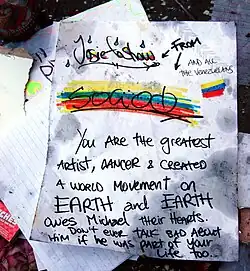 FROM
AND ALL
THE VENEZUELANS
YOU ARE THE GREATEST
ARTIST, DANCER & CREATED
A WORLD MOVEMENT ON
EARTH and EARTH
OWES Michael THEIR HEARTS.
DON'T EVER TALK BAD ABOUT
HIM if HE WAS PART OF YOUR
LIFE TOO...